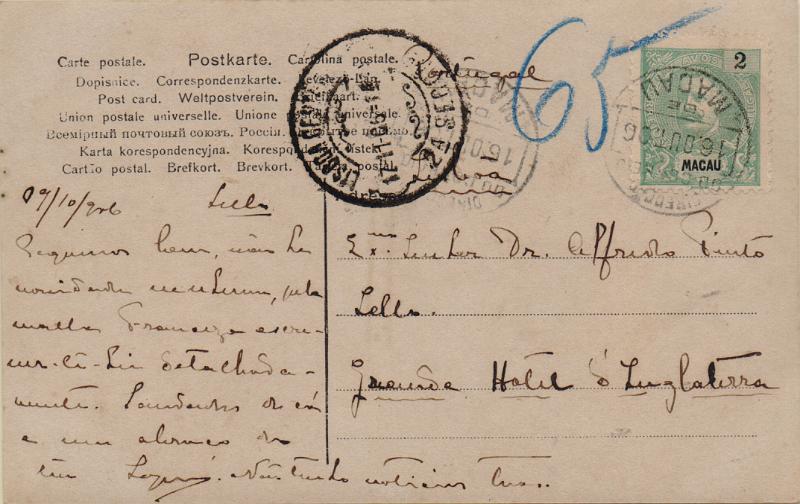 Carte postale. Postkarte. Cartolina postale.
Dopisnice. Correspondenzkarte.
Post card. Weltpostverein.
Union postale universelle. Unione postale universale.
Всемірный почтовый союзъ. Россія.
Karta korespondencyjna.
Cartão postal. Brefkort. Brevkort. postal.
Portugal
Lisboa
65
2
MACAU
MACAU
16 OUT 06
09/10/906 Lello
Seguimos bem, não ha
novidade nenhuma, pela
malla Franceza escre-
ver-te-hei detalhada-
mente. Saudades de
e um abraço do
teu Não tenho noticias tuas.
Exmo Senhor Dr. Alfredo Pinto
Lello
Grande Hotel d'Inglaterra